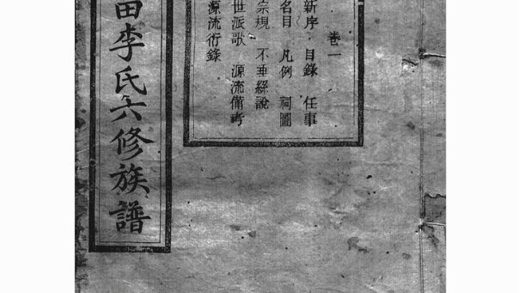 卷一
新序 目錄 任事
名目 凡例 祠圖
宗規 不垂繇說
世派歌 源流備考
源流衍錄
田李氏六修族譜